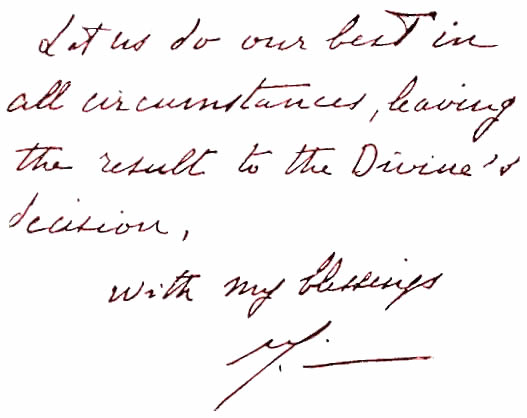 Let us do our best in
all circumstances, leaving
the result to the Divine's
decision,
with my blessings